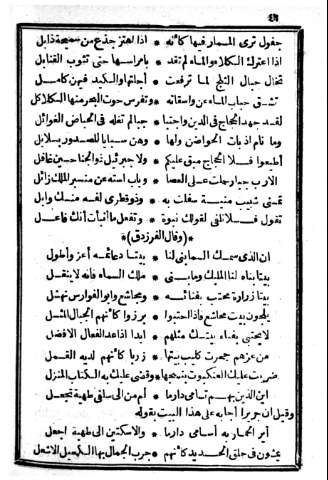 ٤٦
جفول ترى المسمار فيها كأنه * اذا اهتز جذع من سميحة ذابل
اذا اعترك الكلاء والماء لم تقد * بأمراسها حتى تثوب القنابل
تخال جبال الثلج لما ترفعت * أجلتها والكيد فيهن كامل
تشق حباب الماء عن واسقاته * وتغرس حوت البحر منها الكلاكل
لقد جهد الحجاج في الدين واجتبا * جبا لم تغله في الحياض الغوائل
وما نام اذ بات الحواضن ولها * وهن سبايا للصدور بلابل
أطيعوا فلا الحجاج مبق عليكم * ولا جبرئيل ذو الجناحين غافل
الارب جبار حملت على العصا * وباب استه عن منبر الملك زائل
تمنى شبيب منية سفلت به * وذو قطرى لفه منك وابل
تقول فلا تلقى لقولك نبوة * وتفعل ما أنبأت أنك فاعل
*(وقال الفرزدق)*
ان الذى سمك السما بنى لنا * بيتا دعائمه أعز وأطول
بيتا بناه لنا المليك وما بنى * ملك السماء فانه لا ينقل
بيتا زرارة محتب بفنائه * ومجاشع وابو الفوارس نهشل
يلجون بيت مجاشع فاذا احتبوا * برزوا كأنهم الجبال المثل
لا يحتبى بفناء بيتك مثلهم * ابدا اذا عد الفعال الافضل
من عزهم جحرت كليب بيتها * زربا كأنهم لديه القمل
ضربت عليك العنكبوت بنسجها * وقضى عليك به الكتاب المنزل
اين الذين بهم تسامى دارما * أم من الى سلفى طهية تجعل
وقيل ان جريرا أجابه على هذا البيت بقوله
أير الحمار به أسامى دارما * والاسكتين الى طهية اجعل
يمشون فى حلق الحديد كأنهم * جرب الجمال بها الكحيل الاشعل